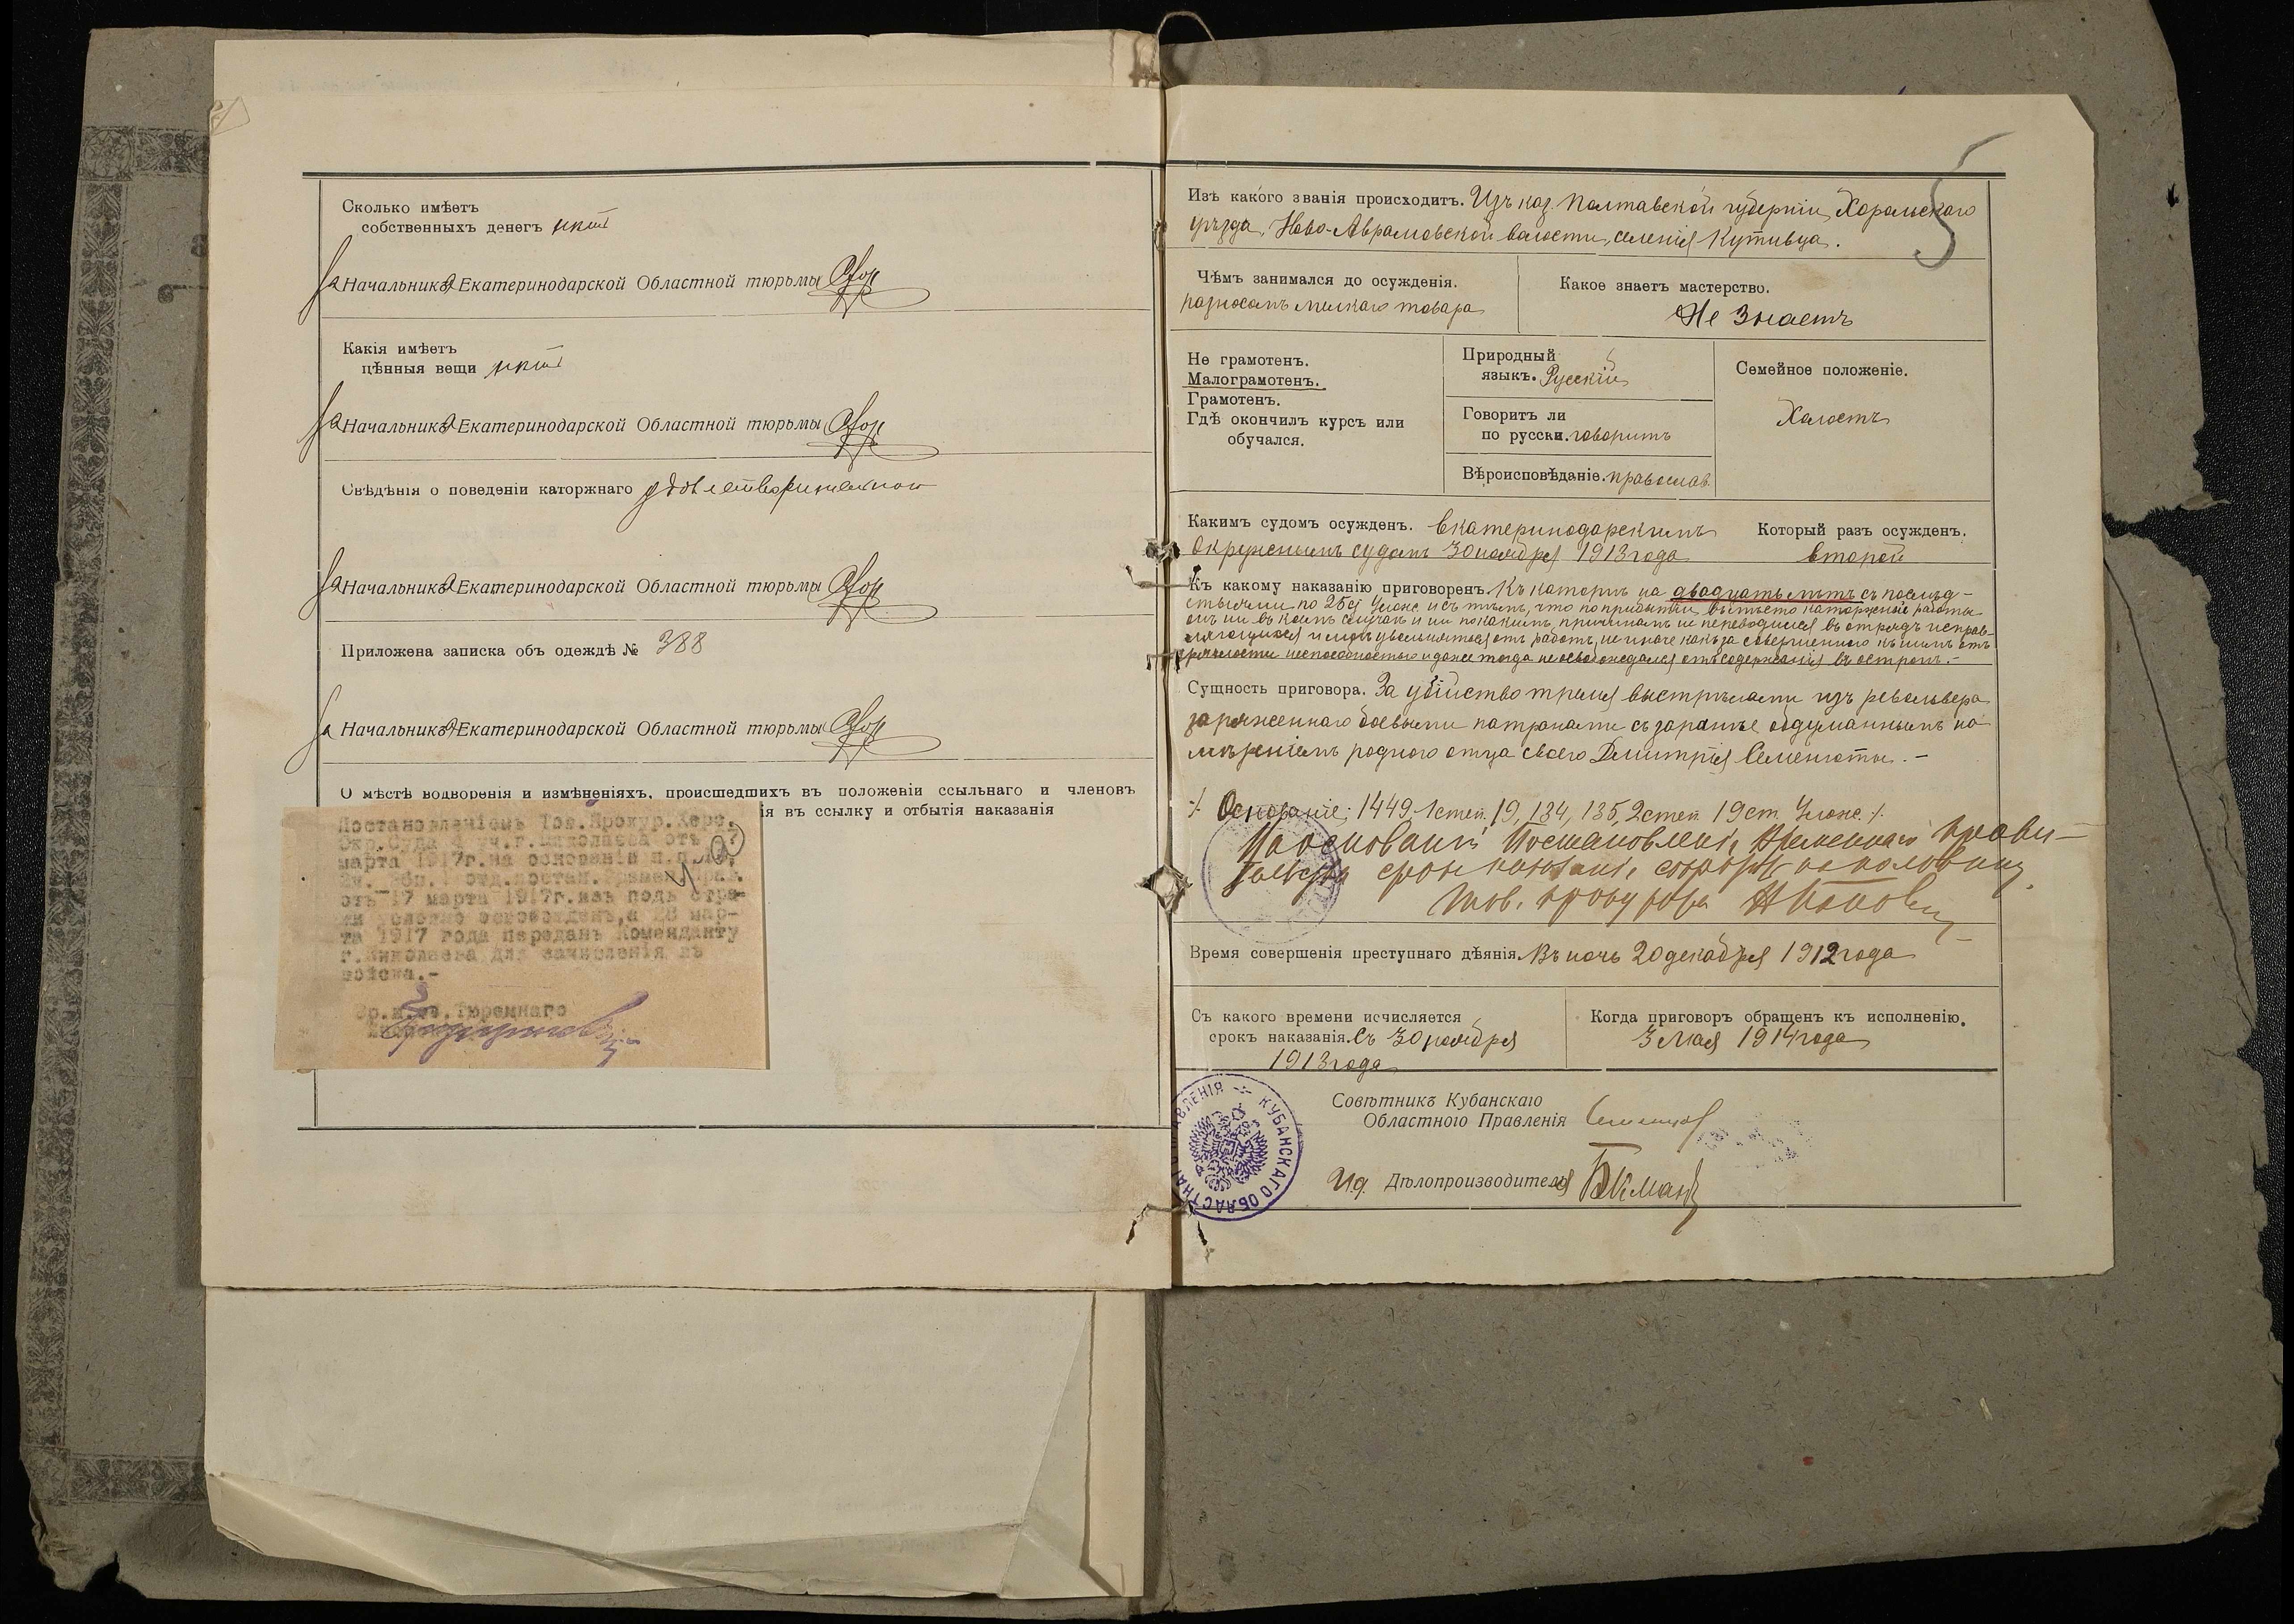 Сколько имѣетъ
собственныхъ денегъ нѣтъ
За Начальника Екатеринодарской Областной тюрьмы
Какія имѣетъ
цѣнныя вещи нѣтъ
За Начальника Екатеринодарской Областной тюрьмы
Свѣдѣнія о поведеніи каторжнаго
За Начальника Екатеринодарской Областной тюрьмы
Приложена записка объ одеждѣ № 388
За Начальника Екатеринодарской Областной тюрьмы
О мѣстѣ водворенія и измѣненіяхъ, происшедшихъ въ положеніи ссыльнаго и членовъ
ія въ ссылку и отбытія наказанія
Постановленіемъ Тов. Прокур. Херс.
Окр. Суда 4 уч. г. Николаева отъ
марта 1917г. на основаніи п.п.
отд. постан. Времен. Прав.
отъ 17 марта 1917г. изъ подъ стра-
жи условно освобожденъ, а 28 мар-
та 1917 года переданъ Коменданту
г. Николаева для зачисленія въ
войска.-
Тюремнаго
5
Изъ какого званія происходитъ. Изъ каз. Полтавской губерніи, Хорольскаго
уѣзда, Ново-Аврамовской волости, селенія Кутивца.
Чѣмъ занимался до осужденія.
разносомъ мелкаго товара
Какое знаетъ мастерство.
Не знаетъ
Не грамотенъ.
Малограмотенъ.
Грамотенъ.
Гдѣ окончилъ курсъ или
обучался.
Природный
языкъ. Русскій
Говоритъ ли
по русски. говоритъ
Вѣроисповѣданіе. православ.
Семейное положеніе.
Холостъ
Какимъ судомъ осужденъ. Екатеринодарскимъ
Окружнымъ судомъ 30 ноября 1913 года
Который разъ осужденъ.
второй
Къ какому наказанію приговоренъ. Къ каторгѣ на двадцать лѣтъ съ послѣд-
ствіями по 25 ст Улож. и съ тѣмъ, что по прибытіи въ мѣсто каторжныхъ работъ
онъ ни въ коемъ случаѣ и ни по какимъ причинамъ не переводился въ отрядъ исправ-
ляющихся и могъ увольняться отъ работъ, не иначе какъ за совершенною къ нимъ отъ
дряхлости неспособностью и даже тогда не освобождался отъ содержанія въ острогѣ.-
Сущность приговора. За убійство тремя выстрѣлами изъ револьвера
заряженнаго боевыми патронами съ заранѣе обдуманнымъ на-
мѣреніемъ родного отца своего Дмитрія Семенюты.-
Основаніе: 1449, 1 степ. 19, 134, 135, 2 степ. 19 ст. Улож.
На основаніи Постановленія Временнаго Прави-
тельства срокъ наказанія сокращ на половину.
Тов. прокурора
Время совершенія преступнаго дѣянія. Въ ночь 20 декабря 1912 года
Съ какого времени исчисляется
срокъ наказанія. Съ 30 ноября
1913 года
Когда приговоръ обращенъ къ исполненію.
3 мая 1914 года
Совѣтникъ Кубанскаго
Областного Правленія
И.д. Дѣлопроизводителя
КУБАНСКАГО ОБЛАСТНА ПРАВЛЕНІЯ